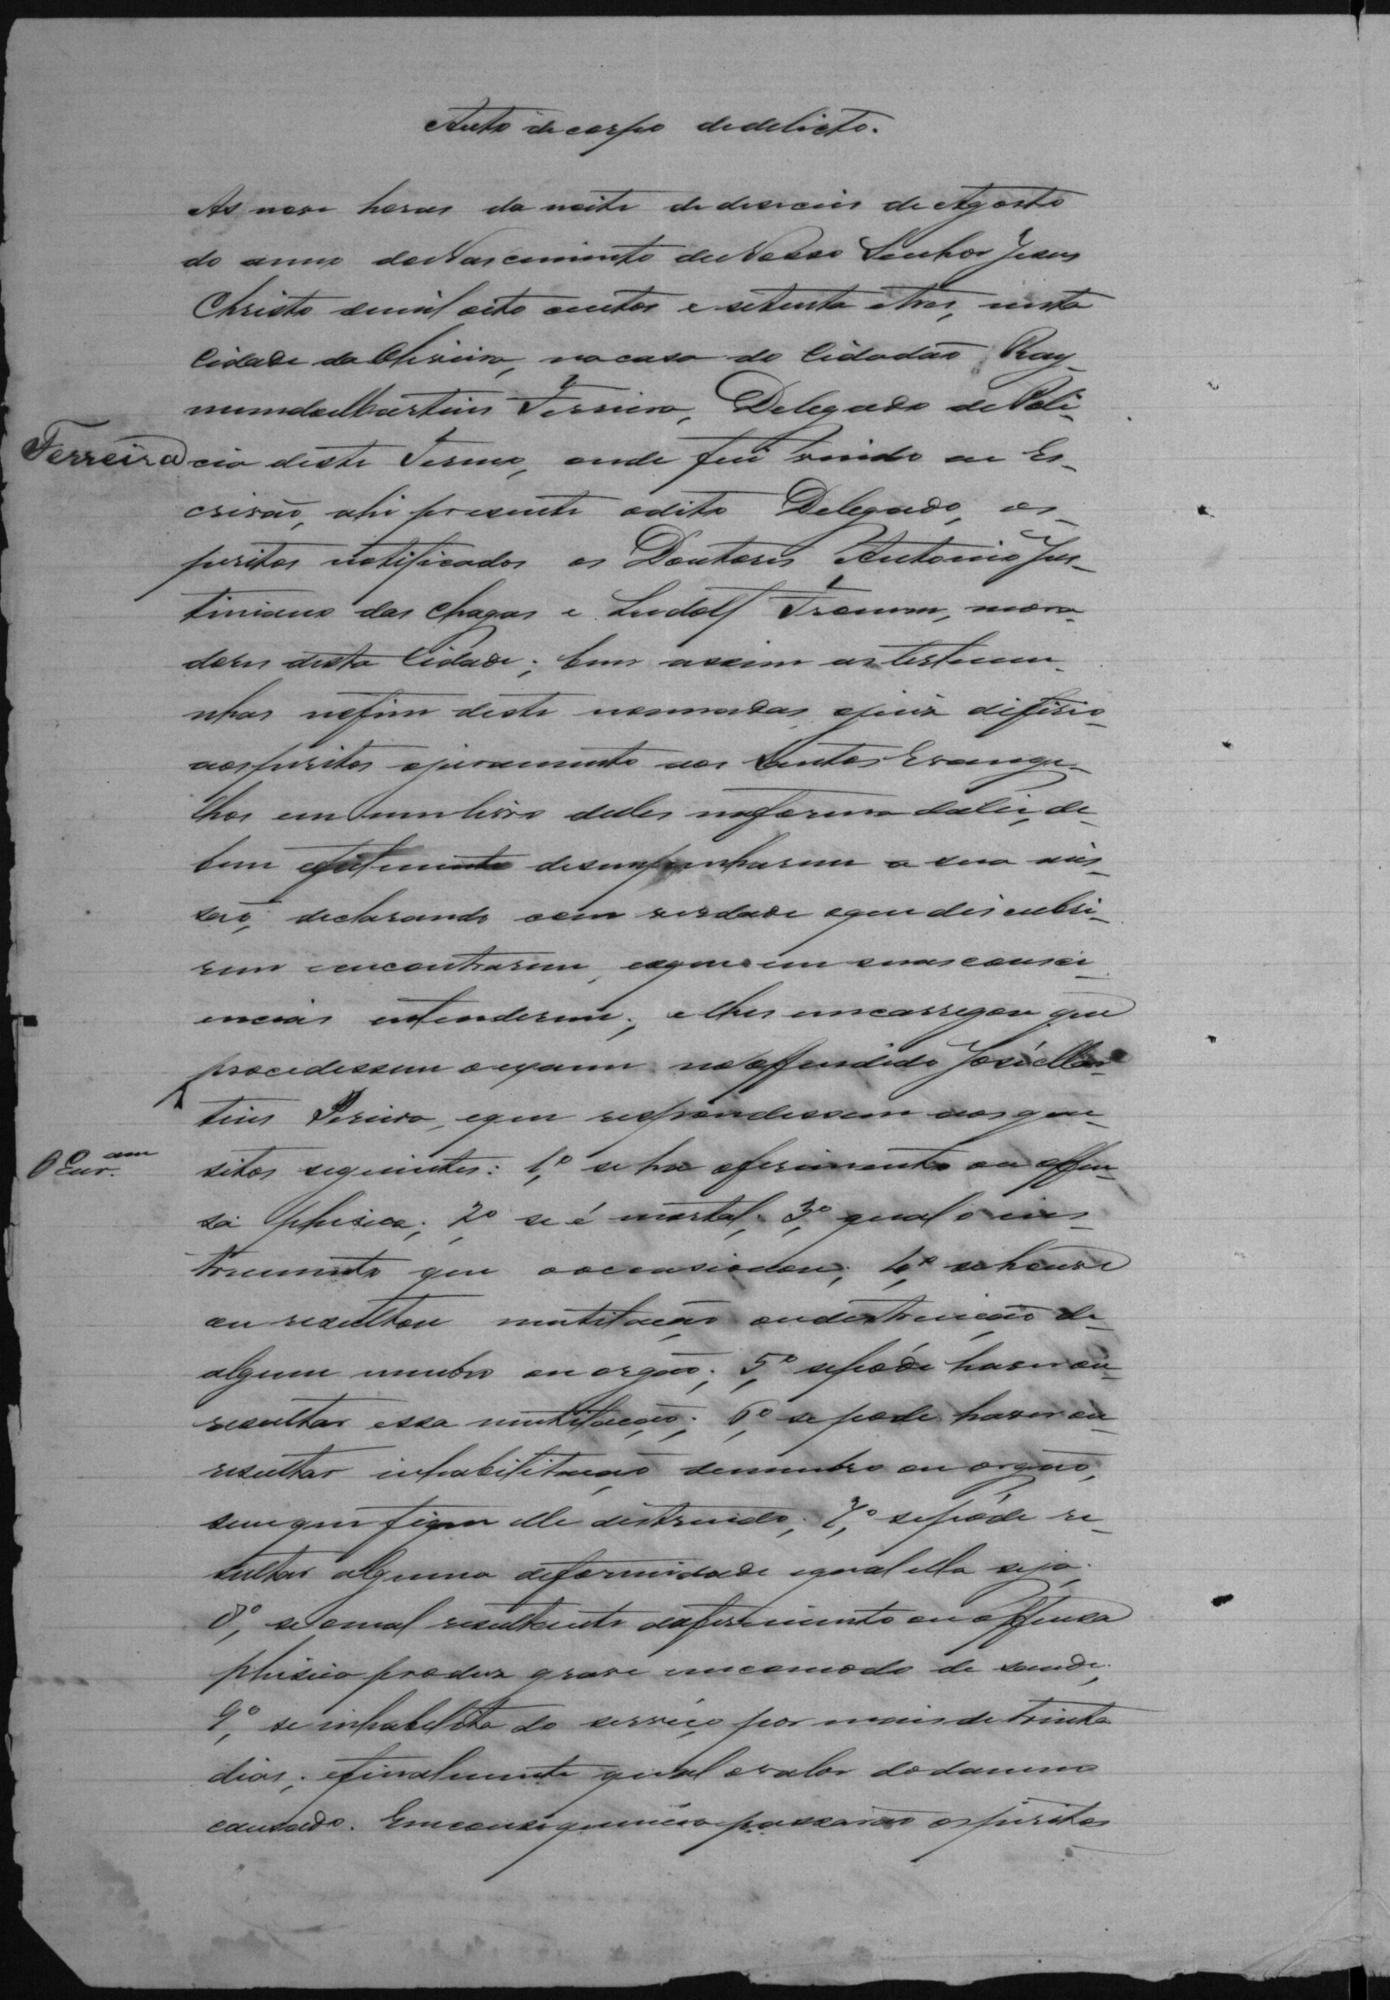 Auto de corpo de delicto.
As nove horas da noite de deseseis de Agosto
do anno do Nascimento de Nosso Senhor Jesus
Christo de mil oito centos e setenta e tres, nesta
Cidade da Oliveira, na casa do Cidadão Ray-
mundo Martins Ferreira, Delegado de Poli-
Ferreira
cia deste Termo, onde fui vindo eu Es-
crivão, ahi presente o dito Delegado, os
peritos notificados os Doutores Antonio Jus-
tiniano das Chagas e Ludolf, mora-
dores desta Cidade; bem assim as testemu-
nhas no fim deste nommeadas, o juiz diferio
aos peritos o juramento aos Santos Evange-
lhos em um livro delles na forma da lei, de
bem e fielmente desempenharem a sua mis-
são, declarando com verdade o que descubri-
rem e encontrarem, e o que em suas consci-
encias entenderem; e lhes encarregou que
procedessem o exame no offendido José Mar-
tins Pereira, e que respondessem aos que-
sitos seguintes: 1º, se ha o ferimento ou offen-
sa phisica; 2º se é mortal; 3º, qual o ins-
trumento que o occasionou; 4º, se houve
ou resultou mutilação ou destruição de
algum membro ou orgão; 5º, se póde haver ou
resultar essa mutilação; 6º, se pode haver ou
resultar inhabilitação de membro ou orgão,
sem que fique elle destruido; 7º, se póde re-
sultar alguma deformidade e qual ella seja;
8º, se o mal resultante do ferimento ou offensa
phisica produz grave encommodo de saude;
9º, se inhabilita do serviço por mais de trinta
dias; e finalmente qual o valor do damno
causado. Em consequencia passarão os peritos